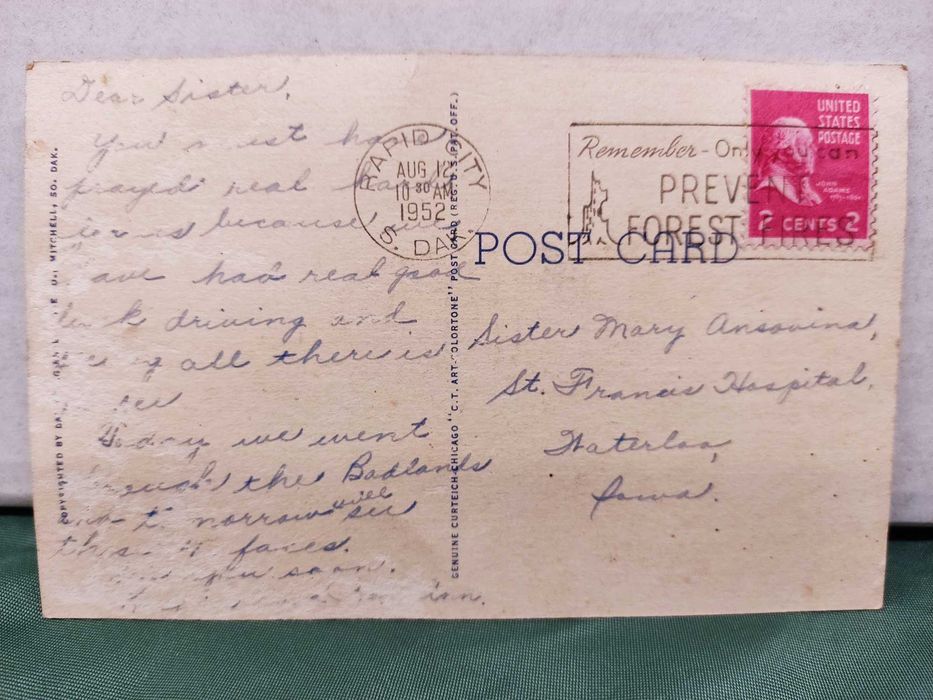 Dear Sister,
You must have
prayed real hard
for us because we
have had real good
luck driving and
seeing all there is
to see
Today we went
through the Badlands
and to morrow will see
the faces.
you soon.
RAPID CITY
AUG 12
10 30 AM
1952
S. DAK.
Remember - Only you can
PREVENT
FOREST FIRES
UNITED
STATES
POSTAGE
JOHN
ADAMS
2 CENTS 2
POST CARD
Sister Mary Ansovina,
St. Francis Hospital,
Waterloo,
Iowa.
GENUINE CURTEICH-CHICAGO "C.T. ART-COLORTONE" POST CARD (REG. U.S. PAT. OFF.)
COPYRIGHTED BY MITCHELL, SO. DAK.